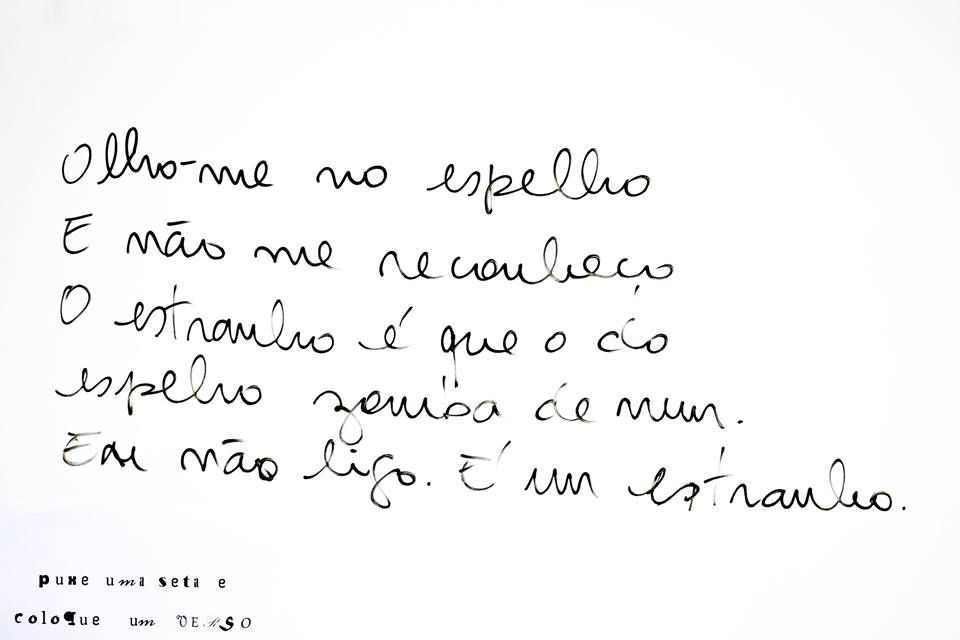 Olho-me no espelho
E não me reconheço
O estranho é que o do
espelho zomba de mim.
Eu não ligo. É um estranho.
puxe uma seta e
coloque um VERSO